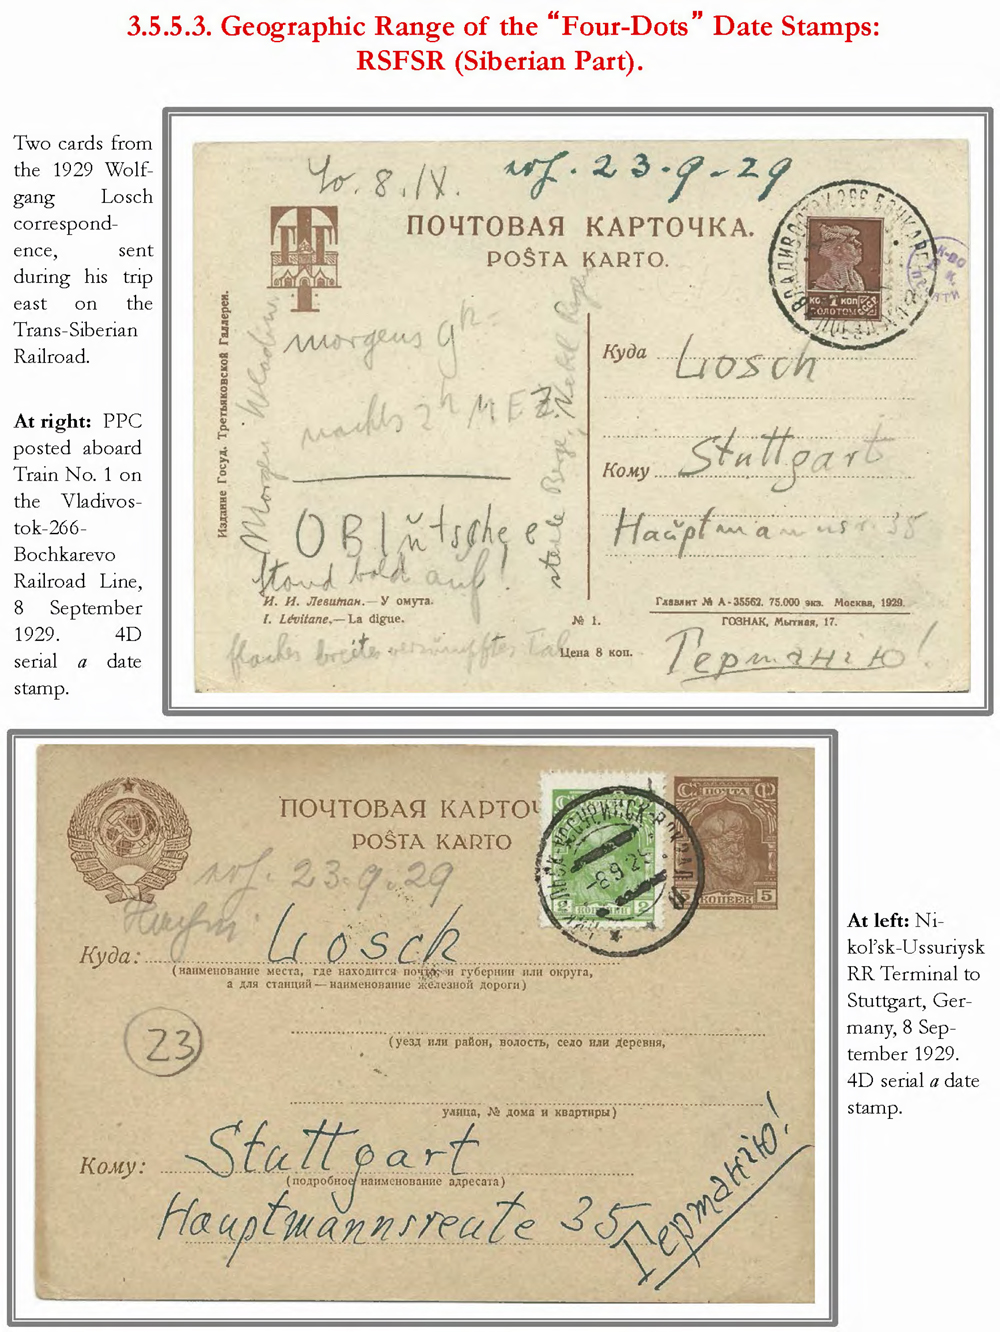 3.5.5.3. Geographic Range of the “Four-Dots” Date Stamps:
RSFSR (Siberian Part).
Two cards from
the 1929 Wolf-
gang Losch
correspond-
ence, sent
during his trip
east on the
Trans-Siberian
Railroad.
At right: PPC
posted aboard
Train No. 1 on
the Vladivos-
tok-266-
Bochkarevo
Railroad Line,
8 September
1929. 4D
serial a date
stamp.
8.IX.
23.9.29
ПОЧТОВАЯ КАРТОЧКА.
POŜTA KARTO.
ВЛАДИВОСТОК 266 БОЧКАРЕВО
КОП 7 КОП
ЗОЛОТОМ
Издание Госуд. Третьяковской Галлереи.
morgens 9h=
nachts 2h MEZ
stand bald auf!
Куда Losch
Кому Stuttgart
Hauptmannsr. 35
И. И. Левитан.—У омута.
I. Lévitane.—La digue.
№ 1.
Цена 8 коп.
Главлит № А-35562. 75.000 экз. Москва, 1929.
ГОЗНАК, Мытная, 17.
flaches breites versumpftes Tal
Германію!
ПОЧТОВАЯ КАРТОЧ
POŜTA KARTO
23.9.29
ПОЧТА
5 КОПЕЕК 5
-8.9.29
Куда: Losch
(наименование места, где находится почта, и губернии или округа,
а для станций—наименование железной дороги)
23
(уезд или район, волость, село или деревня,
улица, № дома и квартиры)
Кому: Stuttgart
(подробное наименование адресата)
Hauptmannsreute 35
Германію!
At left: Ni-
kol’sk-Ussuriysk
RR Terminal to
Stuttgart, Ger-
many, 8 Sep-
tember 1929.
4D serial a date
stamp.